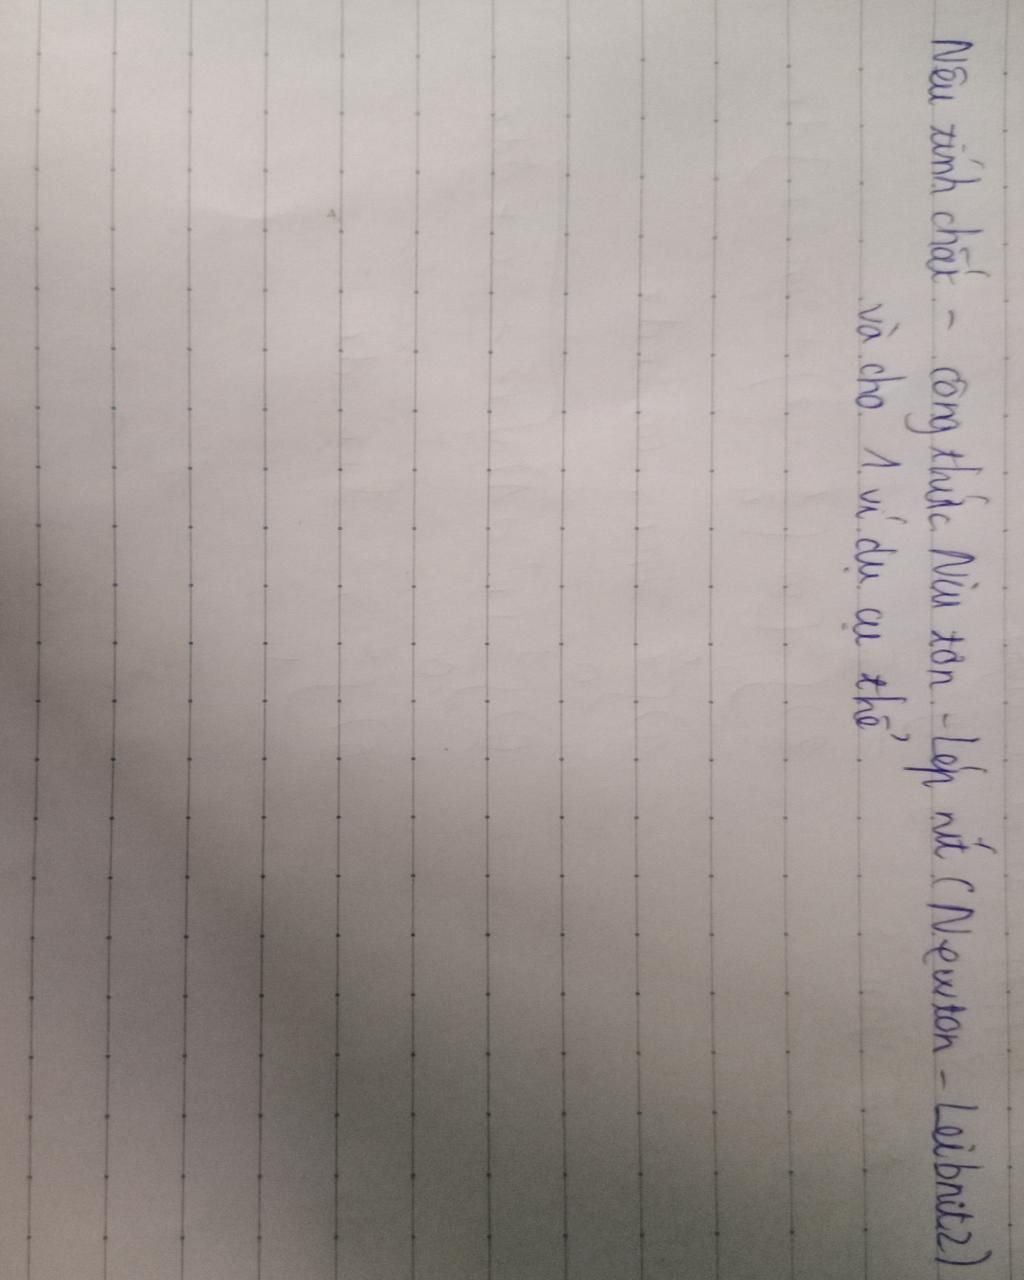 Nêu tính chất - công thức Niu tơn - Lép nít (Newton - Leibnitz)
và cho 1 ví dụ cụ thể